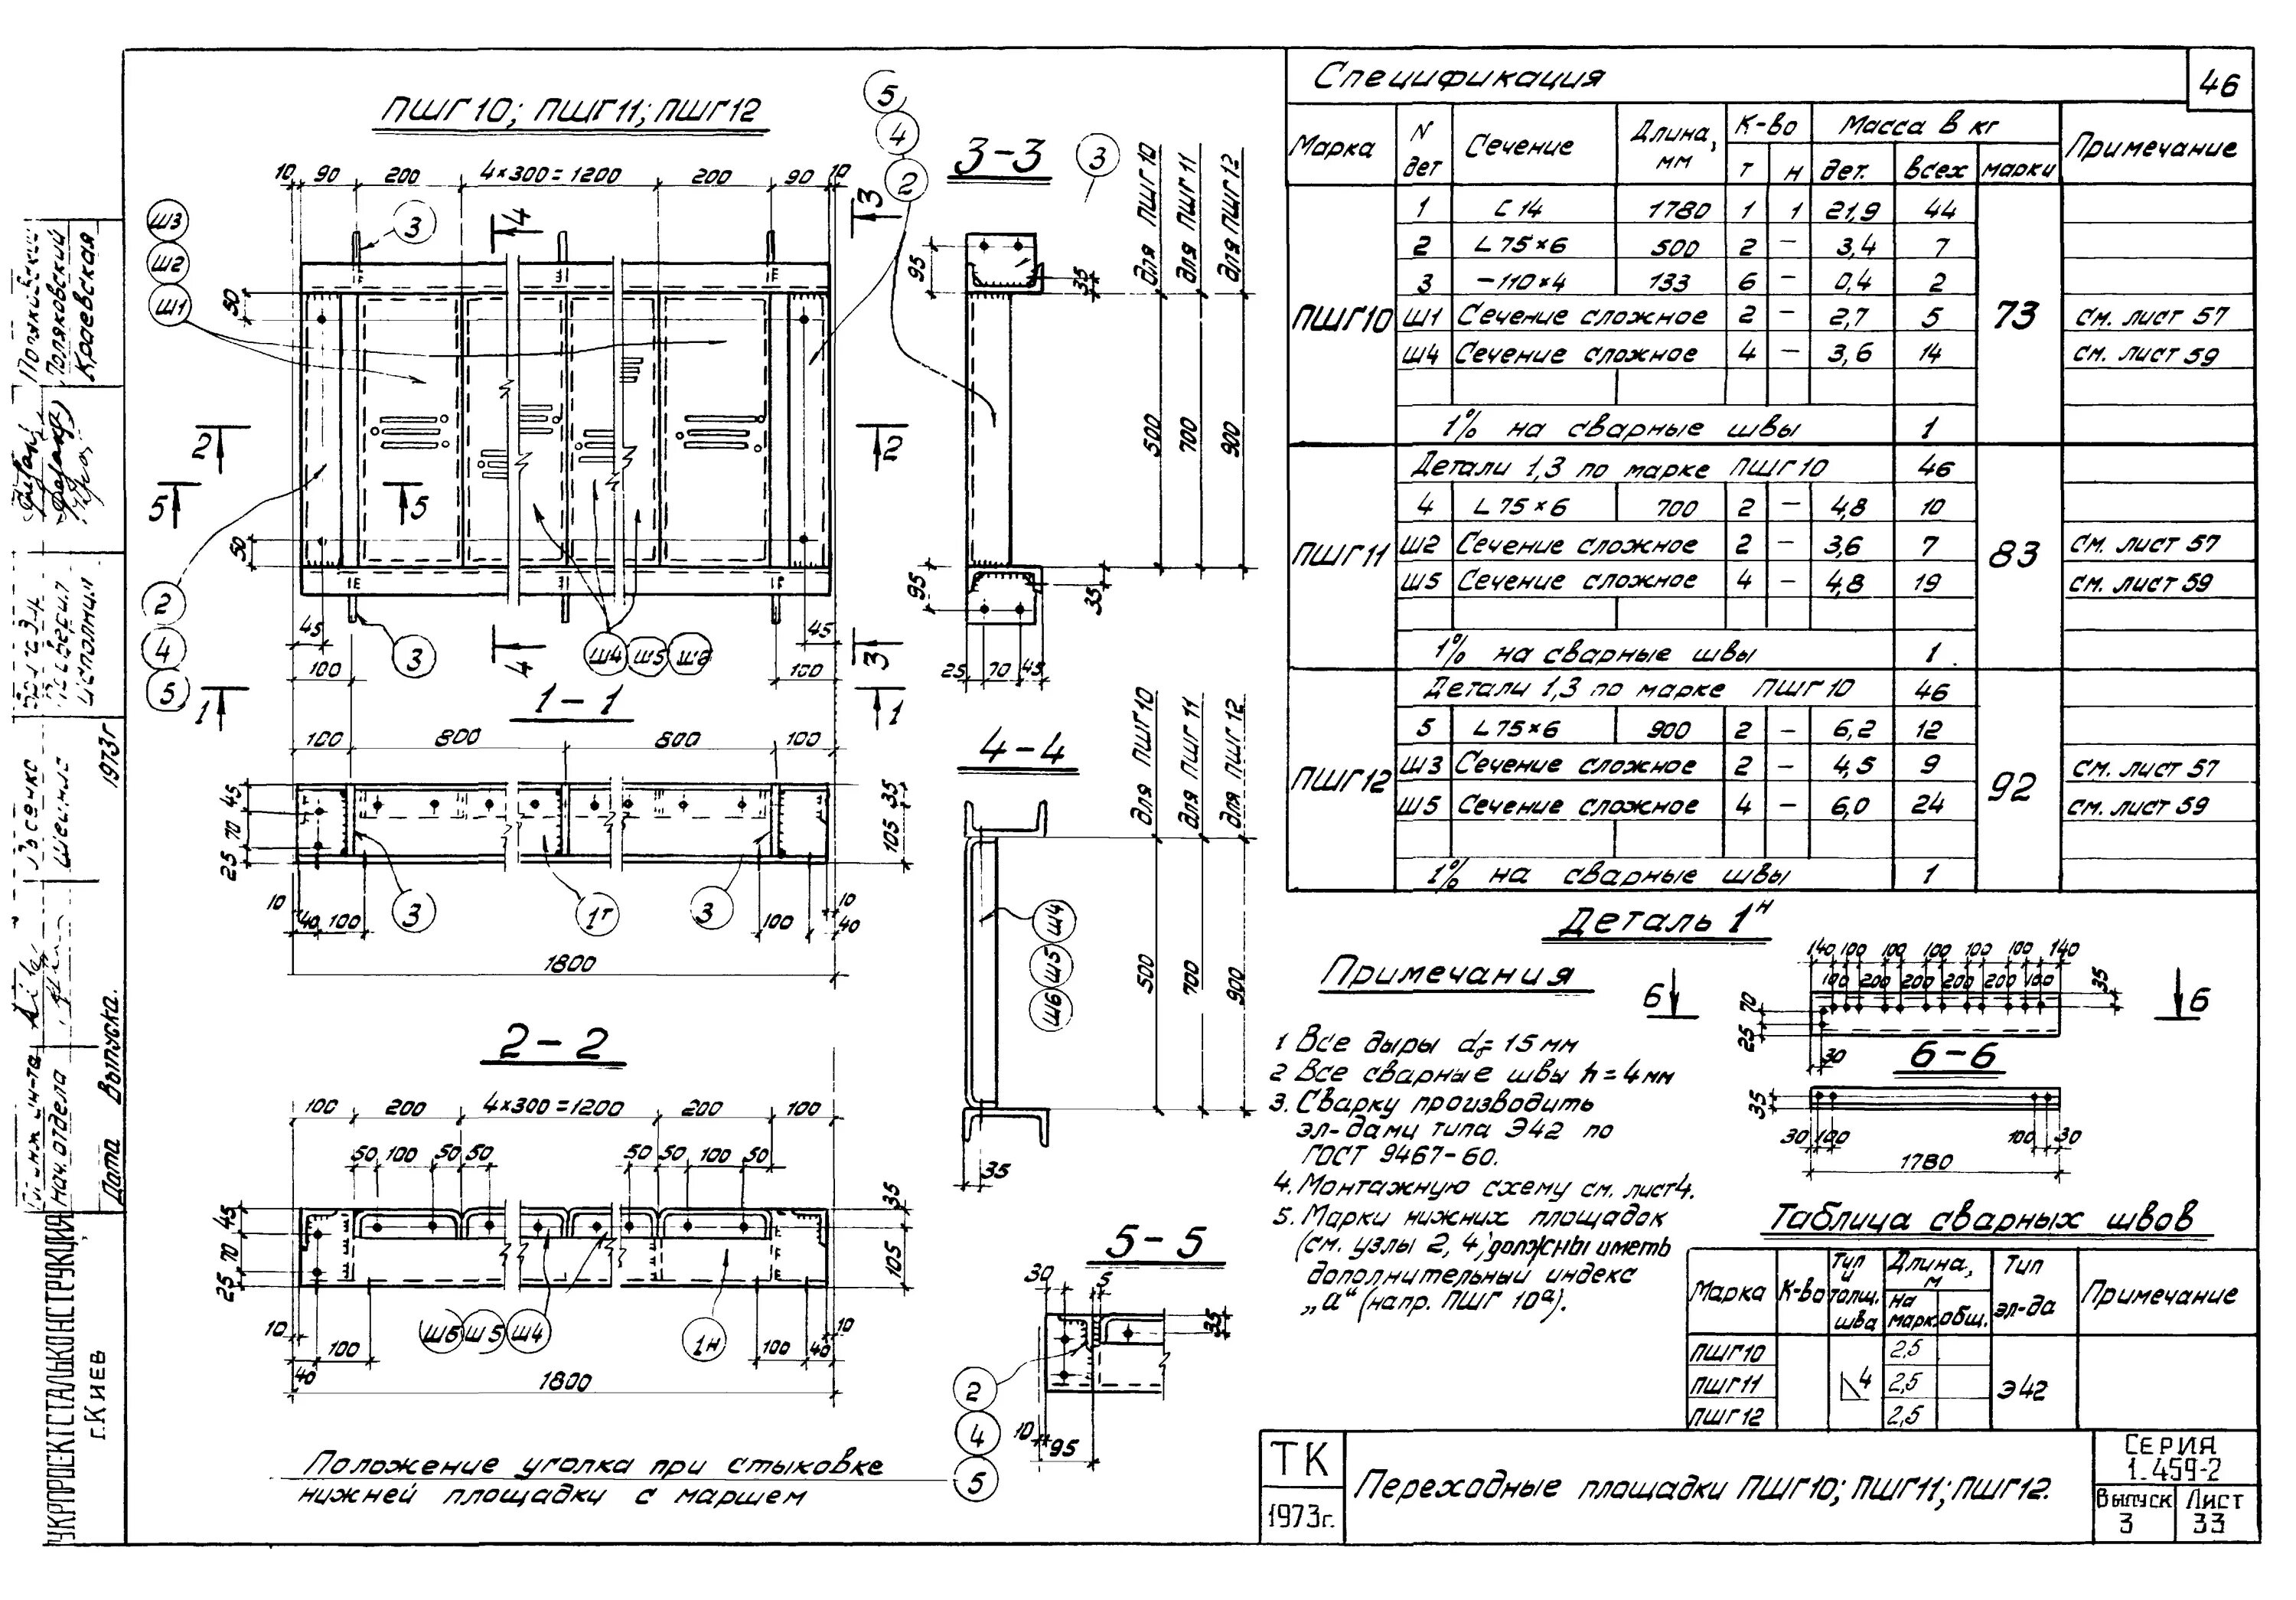 ПШГ10; ПШГ11; ПШГ12
10 90 200 4×300=1200 200 90 10
Ш3
Ш2
Ш1
3
4
3
5
4
2
50
50
2 2
5 5
2
4
5
45 45
100 100
3
4
Ш4 Ш5
3
1 1
1-1
100 800 800 100
45
70
25
35
105
3 1т 3
10 10
40 100 100 40
1800
2-2
100 200 4×300=1200 200 100
50 100 50 50 50 50 100 50
45
70
25
35
105
Ш6 Ш5 Ш4 1н
10 10
40 100 100 40
1800
Положение уголка при стыковке
нижней площадки с маршем
3-3
3
95
35
для ПШГ10
для ПШГ11
для ПШГ12
500
700
900
95
35
25 70 45
4-4
для ПШГ10
для ПШГ11
для ПШГ12
Ш4
Ш5
Ш6
500
700
900
35
5-5
30 5
35
2
4
5
10 95
Спецификация
46
Марка N дет Сечение Длина, мм К-во Масса в кг Примечание
т н дет. всех марки
ПШГ10 73
1 С 14 1780 1 1 21,9 44
2 L 75×6 500 2 – 3,4 7
3 –110×4 133 6 – 0,4 2
Ш1 Сечение сложное 2 – 2,7 5 см. лист 57
Ш4 Сечение сложное 4 – 3,6 14 см. лист 59
1% на сварные швы 1
Детали 1,3 по марке ПШГ10 46
ПШГ11 83
4 L 75×6 700 2 – 4,8 10
Ш2 Сечение сложное 2 – 3,6 7 см. лист 57
Ш5 Сечение сложное 4 – 4,8 19 см. лист 59
1% на сварные швы 1
Детали 1,3 по марке ПШГ10 46
ПШГ12 92
5 L 75×6 900 2 – 6,2 12
Ш3 Сечение сложное 2 – 4,5 9 см. лист 57
Ш5 Сечение сложное 4 – 6,0 24 см. лист 59
1% на сварные швы 1
Деталь 1н
140 100 100 100 100 100 140
100 200 200 200 200 100
35
70
25
30
6 6
6-6
35
30 100 100 30
1780
Примечания
1 Все дыры d = 15 мм
2 Все сварные швы h = 4 мм
3. Сварку производить
эл-дами типа Э42 по
ГОСТ 9467-60.
4. Монтажную схему см. лист 4.
5. Марки нижних площадок
(см. узлы 2, 4) должны иметь
дополнительный индекс
„а“ (напр. ПШГ 10а).
Таблица сварных швов
Марка К-во Тип и толщ. шва Длина, м Тип эл-да Примечание
на марк. общ.
ПШГ10 2,5
ПШГ11 4 2,5 Э42
ПШГ12 2,5
ТК
1973г.
Переходные площадки ПШГ10; ПШГ11; ПШГ12.
Серия
1.459-2
Выпуск Лист
3 33
Поляковский
Краевская
Исполнил
1973г
Дата Выпуска.
нач. отдела
УКРПРОЕКТСТАЛЬКОНСТРУКЦИЯ
г. Киев